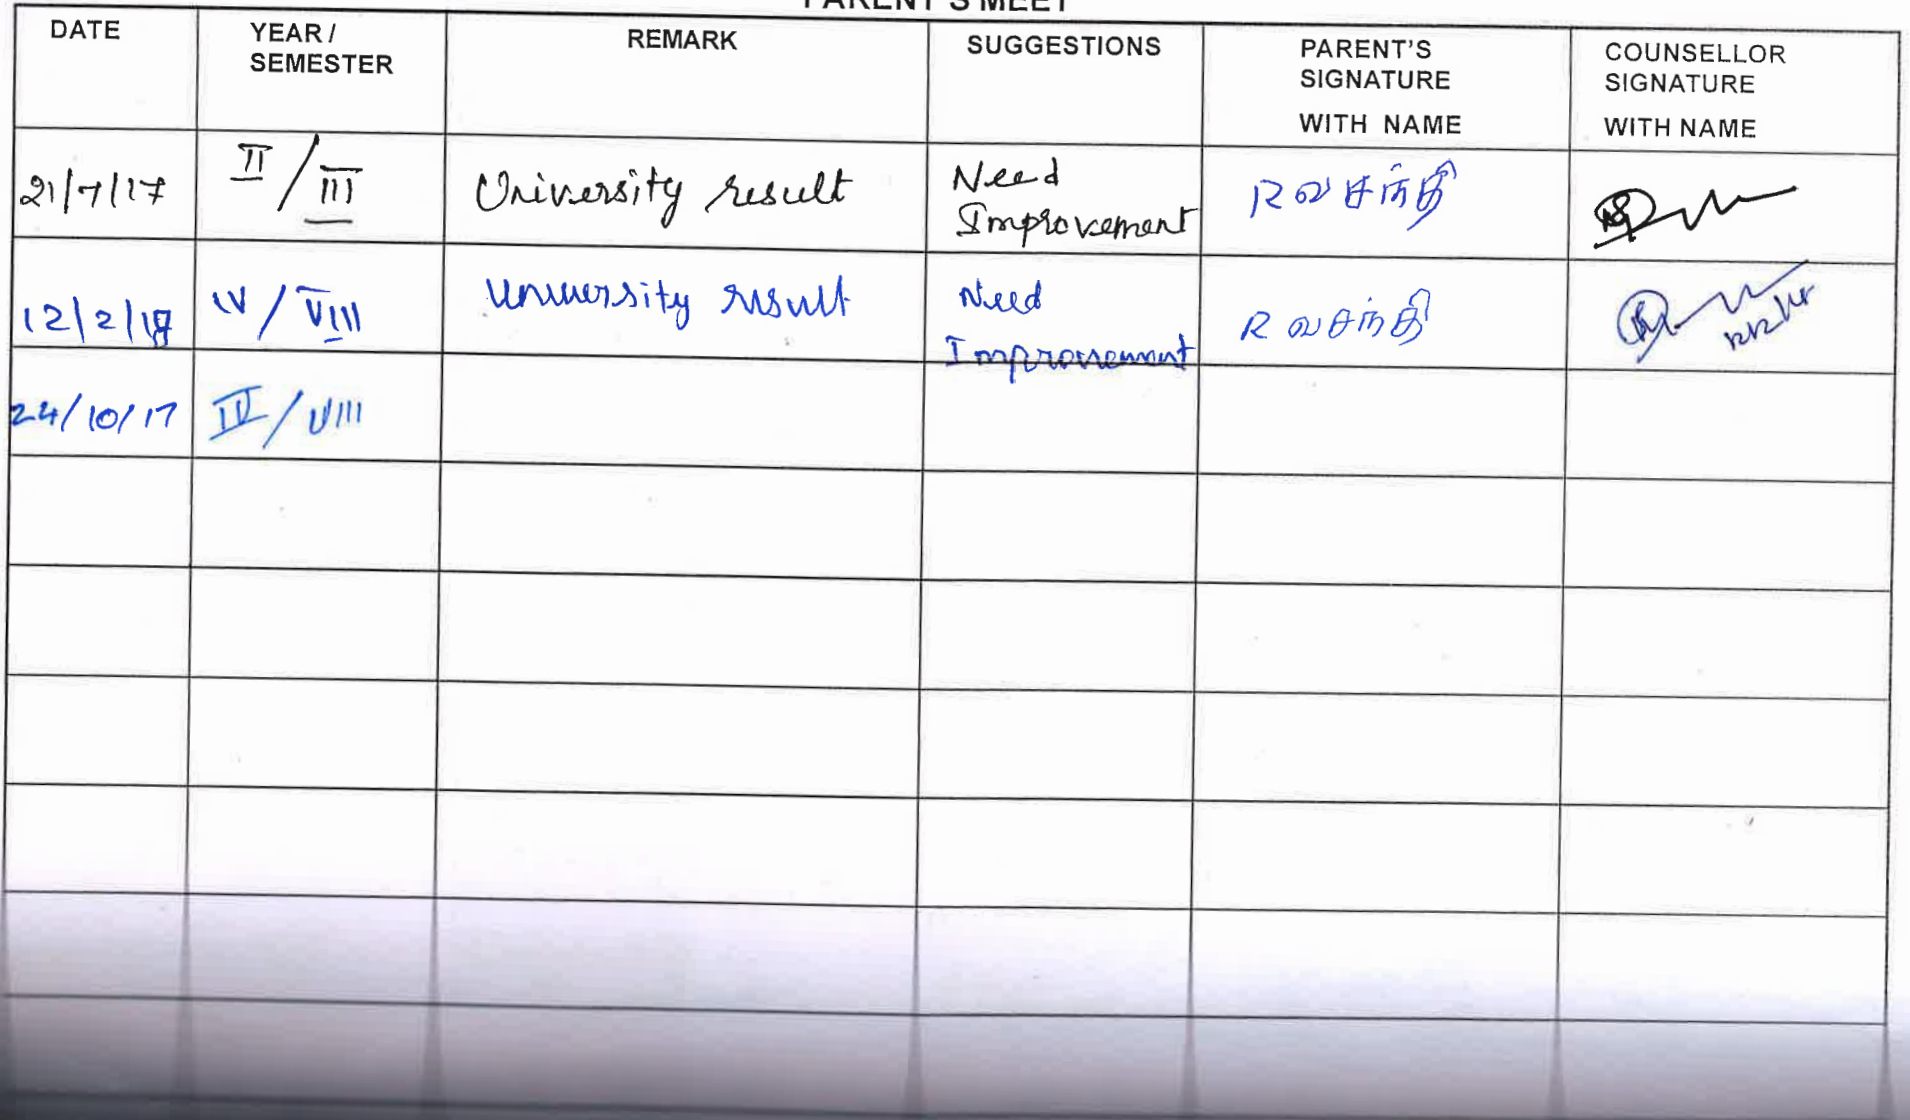 PARENT'S MEET
DATE YEAR / SEMESTER REMARK SUGGESTIONS PARENT'S SIGNATURE WITH NAME COUNSELLOR SIGNATURE WITH NAME
21/7/17 II / III University result Need Improvement R வசந்தி
12/2/18 IV / VIII University result Need Improvement R வசந்தி
24/10/17 IV / VIII